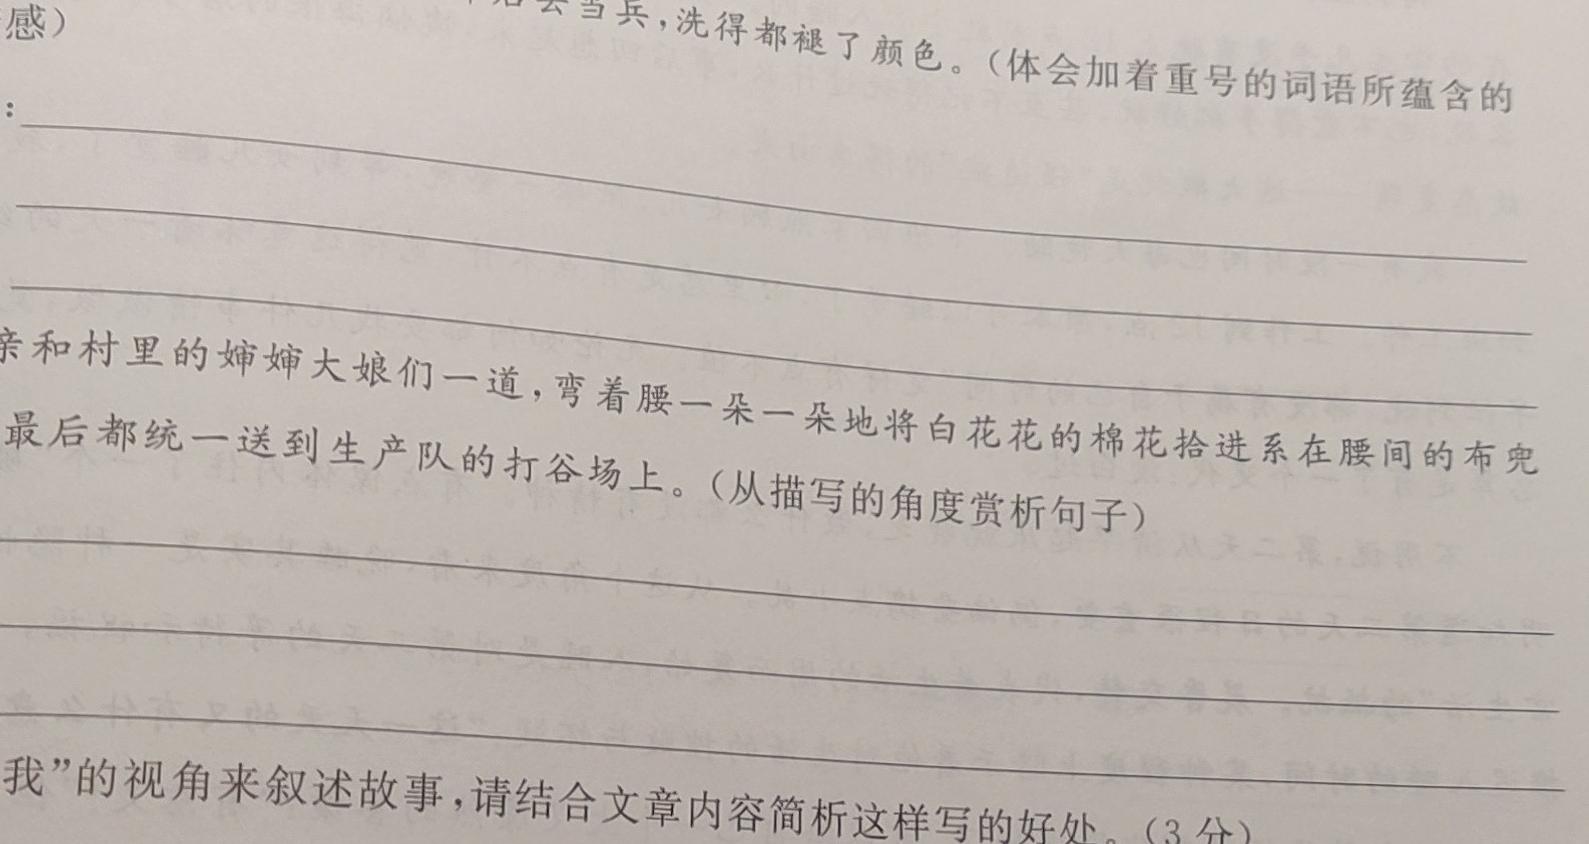 感）
后去当兵，洗得都褪了颜色。（体会加着重号的词语所蕴含的
：
亲和村里的婶婶大娘们一道，弯着腰一朵一朵地将白花花的棉花拾进系在腰间的布兜
最后都统一送到生产队的打谷场上。（从描写的角度赏析句子）
我”的视角来叙述故事，请结合文章内容简析这样写的好处。（3分）